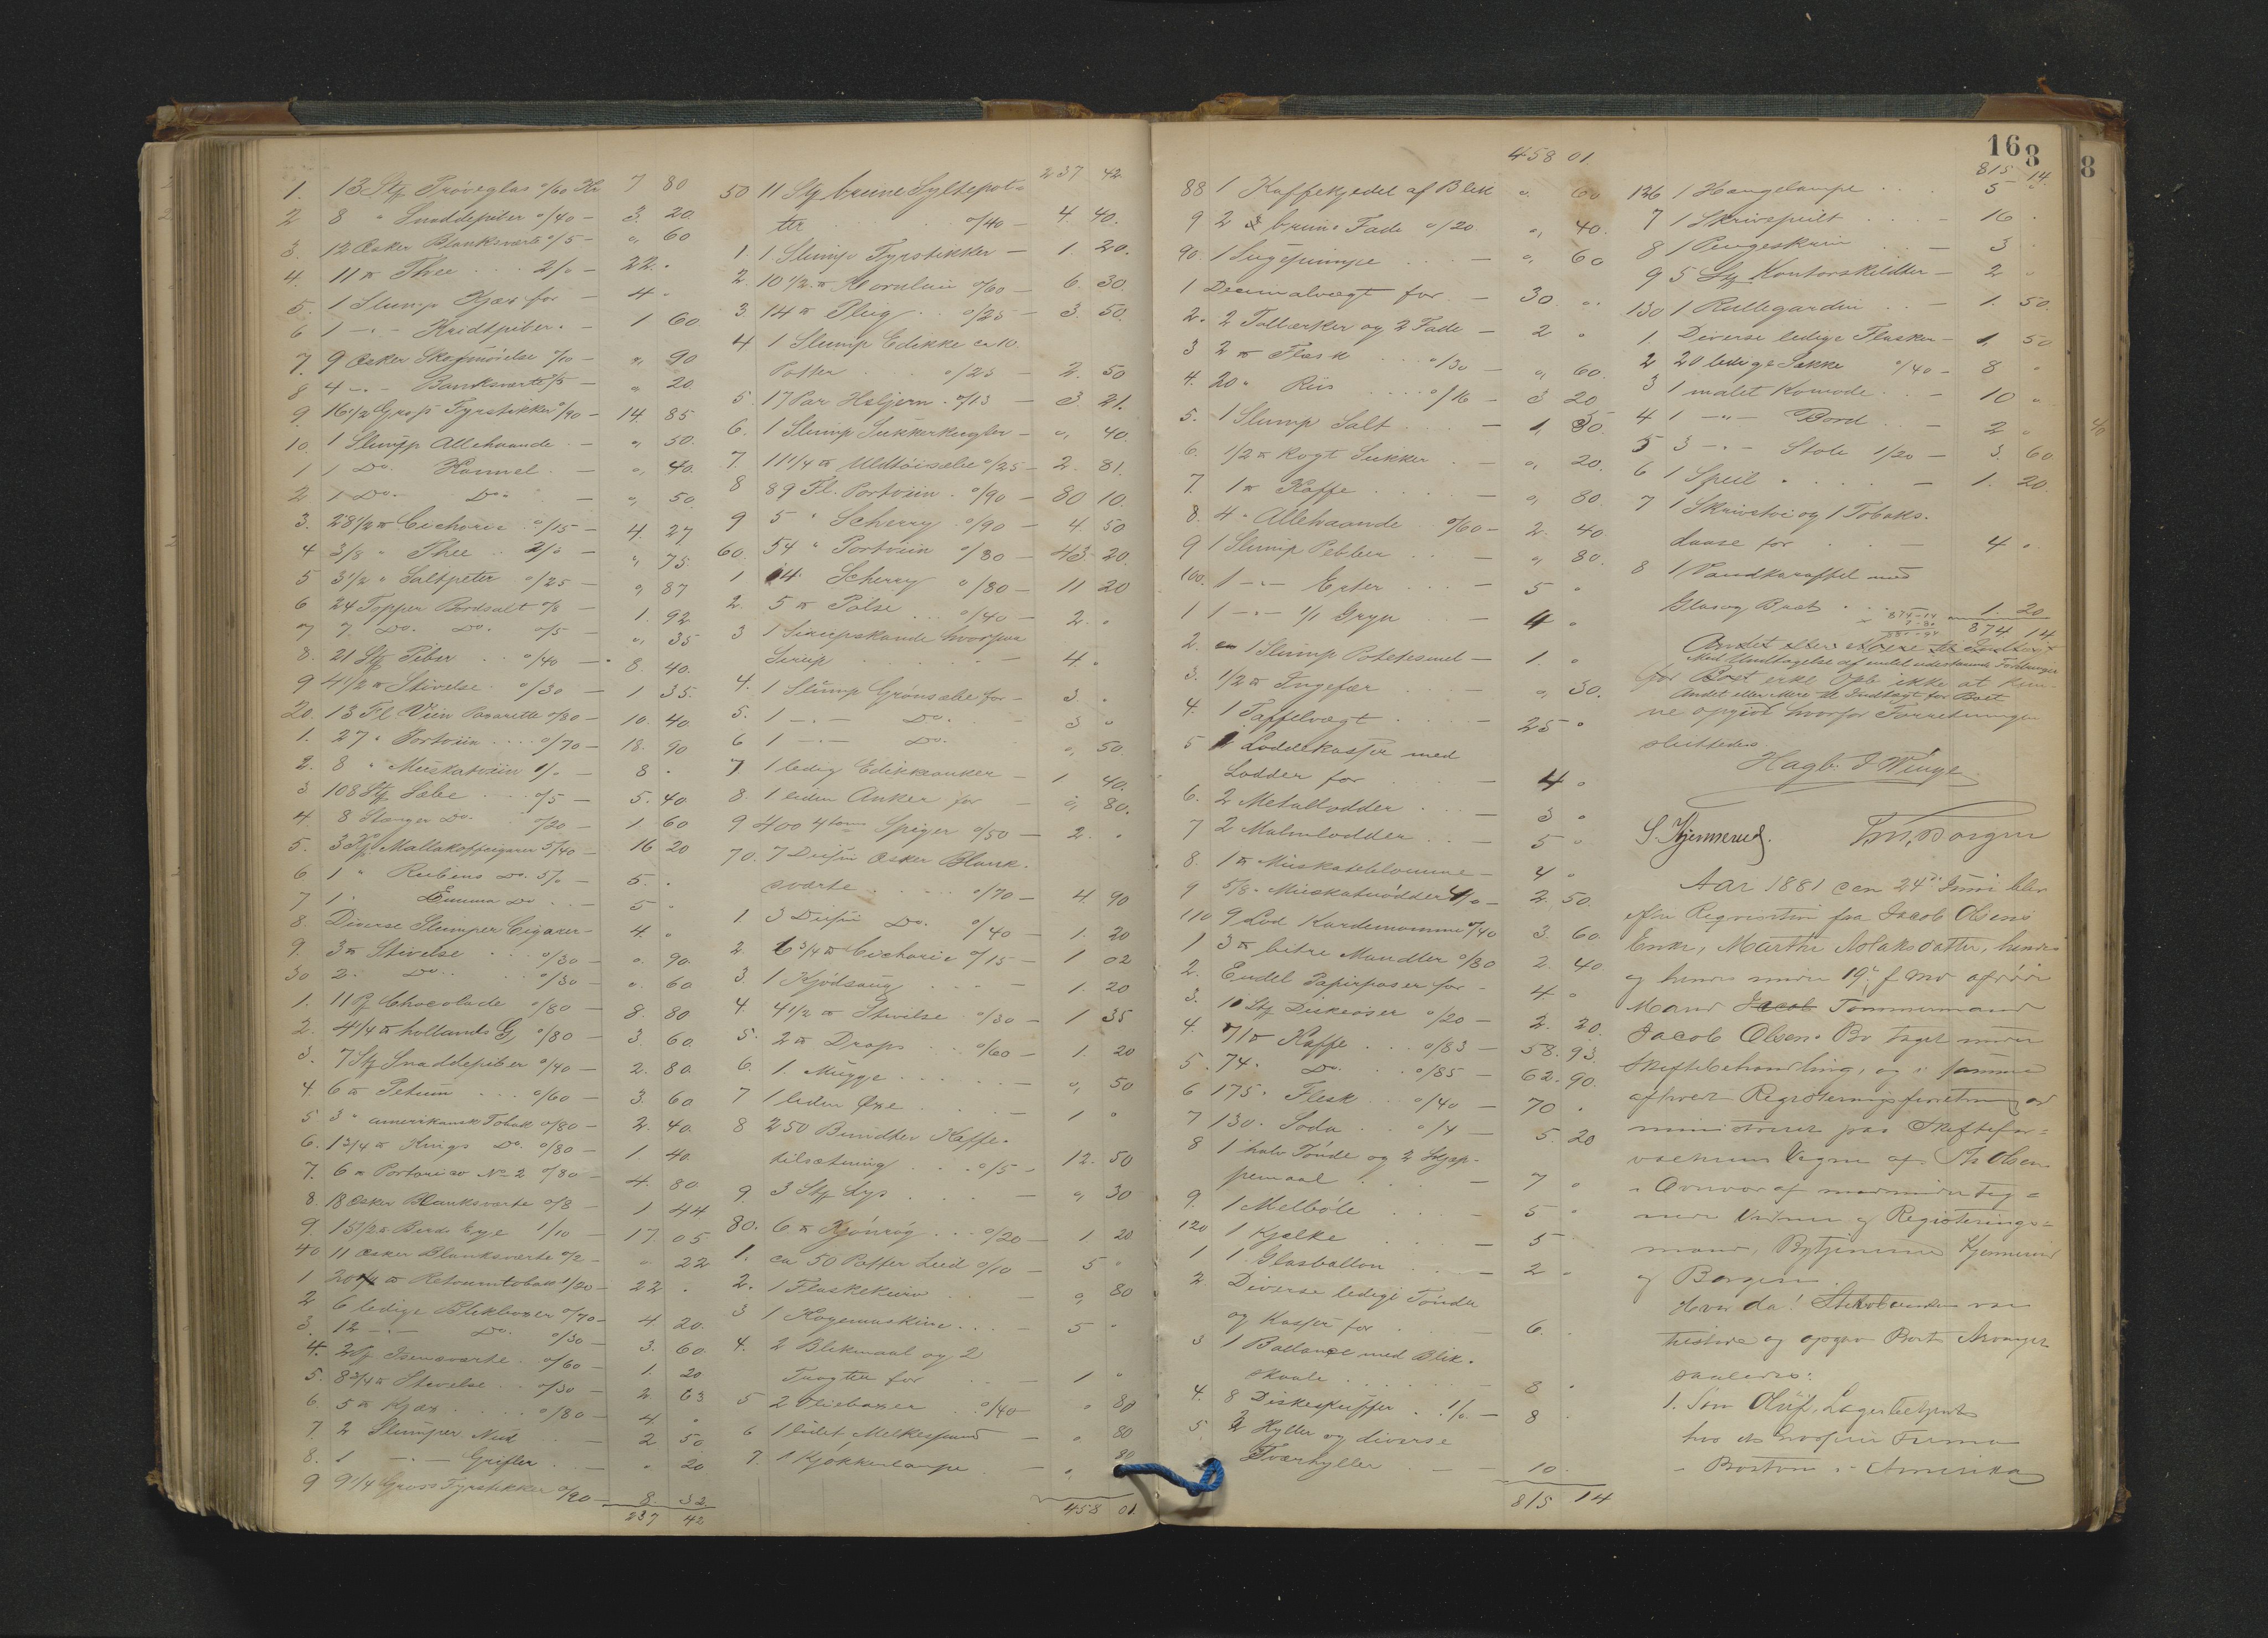 1. 13 Stk Prøveglas o/60 Kr 7 80
2 8 " Snaddepiber o/40 – 3. 20.
3. 12 Æsker Blanksværte o/5 – " 60
4. 11 ℔ Thee . . . 2/0 – 22. "
5. 1 Slump Kjæx for – 4 "
6 1 –"– Kridtpiber. – 1 60
7. 9 Æsker Skosmørelse o/10 – " 90
8 4 –"– Blanksværte o/5 – " 20
9. 16 1/2 Gross Fyrstikker o/90 – 14. 85
10. 1 Slump Allehaande – " 50.
1 1 Do. Kannel. – " 40.
2 1 Do. Do. – " 50.
3. 28 1/2 ℔ Cichorie o/15 – 4. 27
4 3/8 " Thee . 2/0 – " 75
5 3 1/2 " Saltpeter o/25 – " 87
6 24 Topper Bordsalt o/8 – 1. 92
7 7. Do. Do. o/5 – " 35
8. 21 Stk Piber . . o/40 – 8. 40.
9 4 1/2 ℔ Stivelse. o/30 – 1 35.
20. 13 Fl Viin Paxarette o/80 – 10. 40.
1. 27 " Portviin . . . o/70 – 18. 90
2. 8 " Muskatviin 1/0 – 8 "
3 108 Stk Sæbe . . o/5 – 5. 40
4. 8 Stænger Do. . o/20 – 1 60
5. 3 Mallakoffcigarer 5/40 – 16 20
6 1 " Rubens Do. 5/0 – 5. "
7 1 " Emma Do . . – 5 "
8. Diverse Slumper Cigarer – 4. "
9. 3 ℔ Stivelse . . . o/30 – " 90.
30 2. Do. . . o/30 – " 60
1. 11 Chocolade o/80 – 8. 80
2. 4 1/4 ℔ hollands o/80 – 3. 60.
3. 7 Stk Snaddepiber o/40 – 2. 80.
4. 6 ℔ Petum . . . o/60 – 3. 60
5 3 " amerikansk Tobak o/80 – 2. 40.
6. 1 3/4 ℔ Kings Do. o/80 – 1. 40.
7. 6 ℔ Portorico No 2 o/80 – 4. 80
8. 18 Æsker Blanksværte o/8 – 1 44
9. 15 1/2 ℔ Birds Eye 1/10 – 17. 05
40 11 Æsker Blanksværte o/2 – " 22
1 ℔ Retvumtobak – 22 "
2 6 ledige Blikboxer o/70 – 4 20.
3. 12 –"– Do. o/30 – 3. 60.
4. 2 Isensværte. o/60 – 1. 20
5. 8 3/4 ℔ Stivelse . . o/30 – 2. 63
6. 5 ℔ Kjæx . . . . o/80 – 4 "
7. 2 Slumper . . – 2. 50
8. 1 –"– Grifler . . – " 20
9 9 1/4 Gross Fyrstikker o/90 – 8. 32
237 42
237 42
50 11 Stk brune Syltepot-
ter . . . o/40 – 4. 40.
1. 1 Slump Fyrstikker – 1. 20.
2. 10 1/2 ℔ o/60 – 6. 30.
3. 14 ℔ . . o/25 – 3. 50.
4 1 Slump Edikke ca 10.
Potter . . . o/25 – 2. 50
5. 17 Par Hæljern . o/13 – 3 21.
6. 1 Slump Sukkerkugler – " 40.
7. 11 1/4 ℔ Uldtøisæbe o/25 – 2. 81.
8 89 Fl. Portviin . o/90 – 80 10.
9 5 " Scherry . o/90 – 4. 50
60. 54 " Portviin o/80 – 43. 20.
1 14. Scherry o/80 – 11 20
2. 5 ℔ Pølse . . o/40 – 2. "
3 1 Sirupskande hvorpaa
Sirup . . . . . – 4 "
4. 1 Slump Grønsæbe for – 3 "
5. 1 –"– Do. – 3 "
6 1 –"– Do. " 50.
7 1 ledig Edikkeanker – 1 40.
8. 1 liden Anker for – " 80.
9 400 4 toms Spiger o/50 – 2. "
70. 7 Dusin Æsker Blank-
sværte . . . . o/70 – 4. 90
1 3 Dusin Do. o/40 – 1. 20
2. 6 3/4 ℔ Cichorie o/15 – 1 02
3. 1 Kjødsaug . . . – 1. 20
4. 4 1/2 ℔ Stivelse . o/30 – 1 35
5. 2 ℔ Drops . . o/60 – 1. 20
6. 1. Mugge . . . . – " 50
7 1 liden Øxe . . . – 1 "
8 250 Bundter Kaffe-
tilsætning . . . o/5 – 12. 50
9. 3 Stk Lys . . . – " 30
80. 6 ℔ Kjønrøg . . . o/20 – 1. 20
1. ca 50 Potter Lud o/10 – 5 "
2. 1 Flaskekurv . . – " 80
3 1 Kogemaskine . . – 5 "
4. 2 Blikmaal og 2
Tragter for . . – 1 "
5 2 Oliebaxer . . o/40 – " 80
6 1 lidet Melkespand – " 80
7. 1 Kjøkkenlampe . – " 80
458 01
458 01
88 1 Kaffekjedel af Blik " 60
9 2 brune Fade o/20 " 40.
90. 1 Sugepumpe . . . – " 60
1 Decimalvægt for – 30 "
2. 2 Tallerker og 2 Fade – 2 "
3 2 ℔ Flæsk . . . o/30 – " 60.
4. 20 " Riis . . . . o/16 – 3 20
5. 1 Slump Salt . . . – 1, 30.
6. 1/2 ℔ Kogt Sukker . – " 20.
7. 1 ℔ Kaffe . . . . – " 80.
8. 4 " Allehaande . o/60 – 2. 40
9 1 Slump Pebber . . – " 80.
100. 1 –"– Erter . . . – 5 "
1 1 –"– 1/1 Gryn . . – 4 "
2. 1 Slump Potetesmel – 1. "
3. 1/2 ℔ Ingefær . . – " 30.
4. 1 Taffelvægt . . . – 25 "
5 2 Loddekasser med
Lodder for . . . – 4 "
6. 2 Metallodder . . – 3 "
7 2 Malmlodder . . – 5 "
8. 1 ℔ Muskatblomme – 4 "
9 5/8 " Muskatnødder 4/0 – 2. 50.
110 9 Lod Kardemomme o/40 3. 60
1 3 ℔ bitre Mandler o/80 2. 40
2. Endel Papirposer for – 4 "
3. 10 Stk o/20 – 2. 20.
4. 71 ℔ Kaffe . . . o/83 – 58. 93
5. 74 " Do. . . . o/85 – 62. 90.
6 175 " Flesk . . o/40 – 70 "
7 130 " Soda . . o/4 – 5. 20
8 1 halv Tønde og 2 Skjæp-
pemaal . . . . – 7 "
9. 1 Melbøle . . . – 5 "
120 1 Kjælke . . . – 5 "
1 1 Glasballon . . – 2 "
2. Diverse ledige Tønder
og Kasser for . . – 6. "
3 1 Ballance med Blik-
skaale . . . . . – 8 "
4. 8 Diskeskuffer . . 1/0 – 8 "
5. 2 Hyller og diverse
Tværhyller . . – 10.
815 14
168
815 14.
126 1 Hængelampe . . . 5 "
7 1 Skrivepult . . . – 16 "
8 1 Pengeskrin . . – 3 "
9 5 Stk Kontorskildter – 2 "
130 1 Rullegardin . . – 1. 50.
1. Diverse ledige Flasker – 1, 50
2 20 ledige Sække o/40 – 8 "
3 1 malet Komode . . – 10 "
4 1 –"– Bord . . – 2 "
5 3 –"– Stole 1/20 – 3. 60
6 1 Speil . . . . – 1. 20.
7 1 Skrivetøi og 1 Tobaks-
daase for . . – 4 "
8 1 Vandkaraffel med
Glas og Bræt . . . 1. 20
874 14
Andet eller Mere til Indtægt
Med Undtagelse af endel udestaaende Fordringer
for Boet ikke at kun-
Andet eller Mere til Indtægt for Boet
ne opgives hvorfor Forretningen
sluttedes
Hagb. J Winge
S. Kjennerud. Th. M. Borgen
Aar 1881 den 24de Juni blev
efter Requisition fra Jacob Olsens
Enke, Marthe Aslaksdatter, hendes
og hendes under 19de f. Md afdøde
Mand Jacob Tømmermand
Jacob Olsens Bo taget under
Skiftebehandling, og i samme
afholdt Registreringsforretning ad
ministreret paa Skiftefor-
valterens Vegne af Th Olsen
i Overvær af medunderteg-
nede Vidner og Registerings-
mænd, Bytjenerne Kjennerud
og Borgen.
Hvor da! Stervboenken var
tilstede og opgav Boets Arvinger
saaledes:
1. Søn Oluf, Lagerbetjent
hos et Firma
i Boston i Amerika